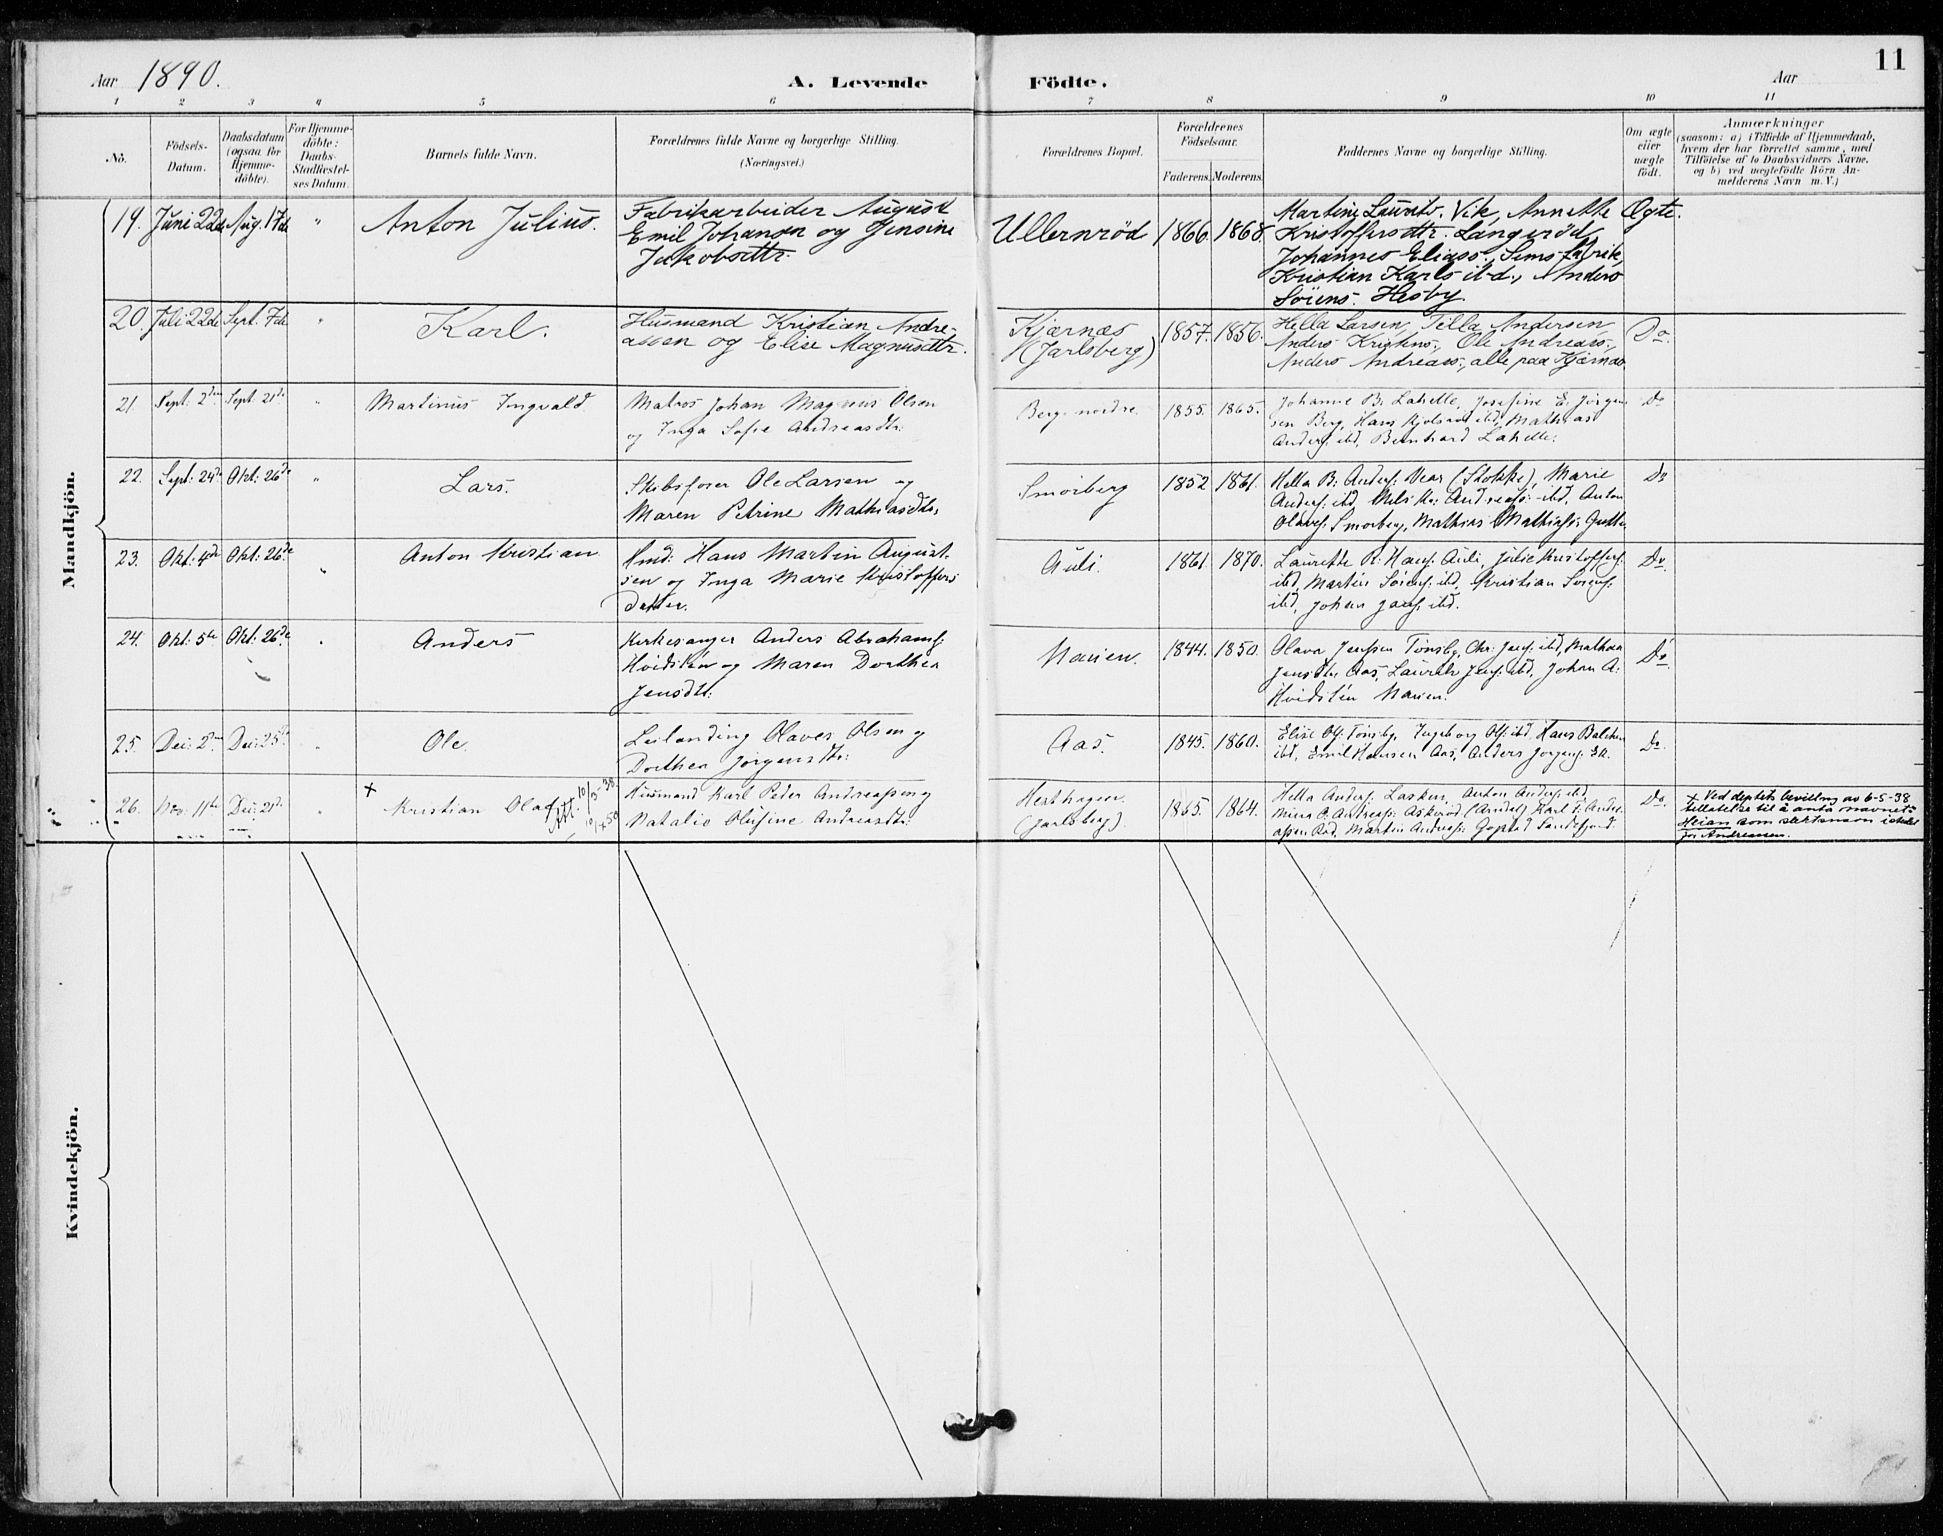 Aar 1890.
A. Levende
Födte.
Aar
11
1 2 3 4 5 6 7 8 9 10 11
No.
Födsels-
Datum.
Daabsdatum
(ogsaa for
Hjemme-
döbte).
For Hjemme-
döbte:
Daabs-
Stadfæstel-
ses Datum.
Barnets fulde Navn.
Forældrenes fulde Navne og borgerlige Stilling.
(Næringsvei.)
Forældrenes Bopæl.
Forældrenes
Födselsaar.
Faderens. Moderens.
Faddernes Navne og borgerlige Stilling.
Om ægte
eller
uægte
födt.
Anmærkninger
(saasom: a) i Tilfælde af Hjemmedaab,
hvem der har forrettet samme, med
Tilföielse af to Daabsvidners Navne,
og b) ved uægtefödte Börn An-
melderens Navn m. V.)
Mandkjön.
19. Juni 22de Aug. 17de " Anton Julius.
Fabrikarbeider August
Emil Johansen og Jensine
Jakobsdtr.
Ullernröd 1866. 1868.
Martine Laurits. Vik, Annette
Kristoffersdtr. Langeröd
Johannes Eliass., Sems fabrik,
Kristian Karls ibd., Anders
Sörens. Hesby.
Ægte.
20. Juli 22de Sept. 7de " Karl.
Husmand Kristian Andre-
assen og Elise Magnusdtr.
Kjærnæs
(Jarlsberg)
1857. 1856.
Hella Larsen, Tilla Andersen,
Anders Kristens., Ole Andreass.,
Anders Andreass., alle paa Kjærnæs
Do.
21 Sept. 2den Sept. 21de " Martinus Ingvald.
Matros Johan Magnus Olsen
og Inga Sofie Andreasdtr:
Berg nordre. 1855. 1865.
Johanne B. Lahelle, Josefine E. Jörgen
sen Berg, Hans ibd, Mathias
Anders: ibd, Bernhard Lahelle:
Do
22. Sept: 24de Okt: 26de " Lars.
Skibsförer Ole Larsen og
Maren Petrine Mathiasdtr,
Smörberg 1852 1861.
Hella B: Anders: Vear (Stokke), Marie
Anders: ibd, Nils Kr: Andreass: ibd, Anton
Olaves: Smörberg, Mathias Mathiass:
Do
23. Okt: 4de Okt: 26de. " Anton Kristian
Hmd: Hans Martin August-
sen og Inga Marie Kristoffers
datter.
Auli. 1861. 1870.
Laurette R: Hans: Auli, Julie Kristoffers:
ibd, Martin Sörens: ibd, Kristian Sörens:
ibd, Johan Jans: ibd.
Do.
24. Okt: 5te Okt: 26de. " Anders
Kirkesanger Anders Abrahams:
Hvidstén og Maren Dorthea
Jensdtr:
Narien. 1844. 1850.
Olava Jenssen Tönsbg, Chr: Jens: ibd, Mathea
Jensdtr Aas, Laurits Jens: ibd, Johan A:
Hvidstén Narien.
Do
25. Dec: 2den Dec: 25de. " Ole.
Leilænding Olaves Olsen og
Dorthea Jörgensdtr:
Aas. 1845. 1860.
Elise Ols: Tönsbg, Ingeborg Ols: ibd, Hans Balchen
ibd, Emil Hansen Aas, Anders Jörgens: Ek.
Do.
26. Nov: 11te Dec: 21de. " × Kristian Olaf Att. 10/3-38
10/4 50
Husmand Karl Peder Andreassen og
Natalie Olufine Andreasdtr:
Hesthagen.
(Jarlsberg).
1865. 1864.
Hella Anders: Lasken, Anton Anders: ibd,
Mina O. Andreass: Askeröd (Andebu) Karl F. Andre-
assen Rød, Martin Andreass: Gogstad Sandefjord.
Do.
× Ved deptets bevillng av 6-5-38
tillatelse til å anta navnet:
Heian som slektsnavn istedet
for Andreassen.
Kvindekjön.